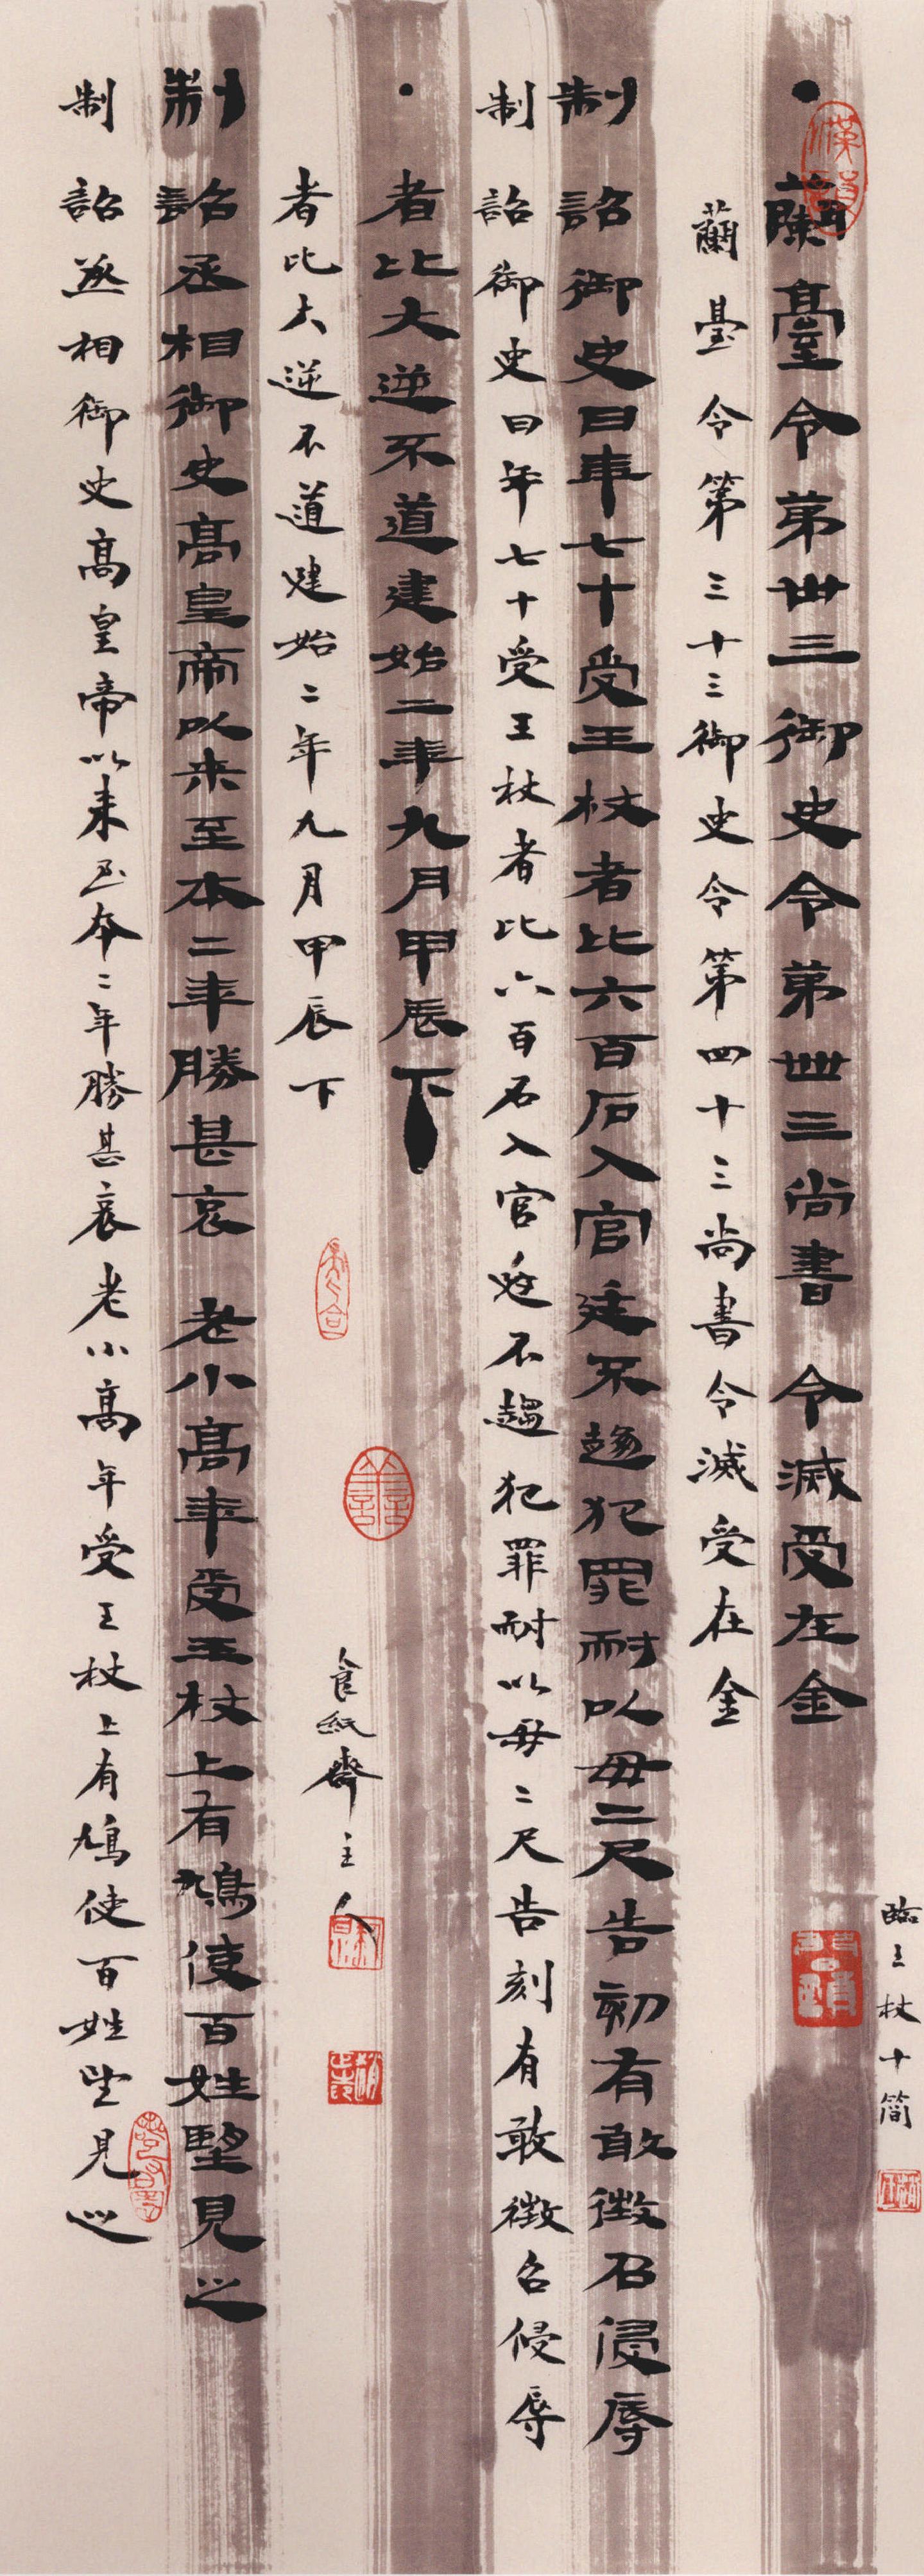 臨王杖十简
・蘭臺令苐卌三御史令苐卌三尚書令滅受在金
蘭臺令第三十三御史令第四十三尚書令滅受在金
制詔御史曰年七十受王杖者比六百石入官廷不趨犯罪耐以毋二尺告劾有敢徵召侵辱
制詔御史曰年七十受王杖者比六百石入官廷不趨犯罪耐以毋二尺告刻有敢徵召侵辱
・者比大逆不道建始二年九月甲辰下
者比大逆不道建始二年九月甲辰下
食紙齋主人
制詔丞相御史高皇帝以来至本二年勝甚哀老小高年受王杖上有鳩使百姓望見之
制詔丞相御史高皇帝以来至本二年勝甚哀老小高年受王杖上有鳩使百姓望見之